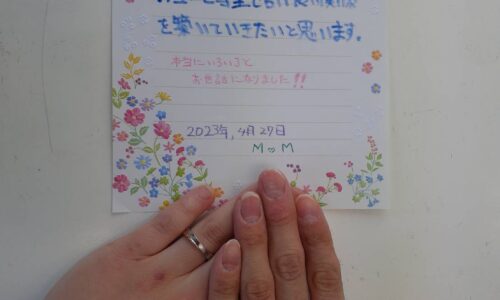 を築いていきたいと思います。
本当にいろいろと
お世話になりました!!
2023年, 4月 27日
M♡M